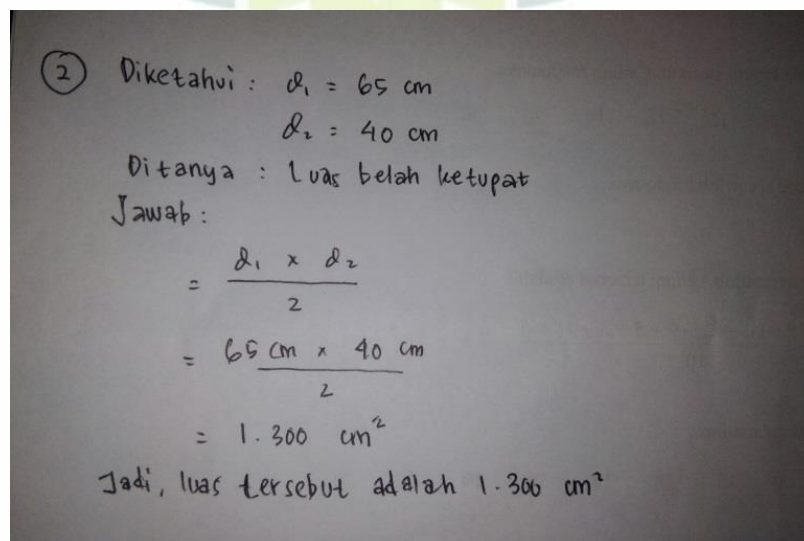 2 Diketahui : d₁ = 65 cm
d₂ = 40 cm
Ditanya : Luas belah ketupat
Jawab :
= d₁ x d₂
2
= 65 cm x 40 cm
2
= 1.300 cm²
Jadi, luas tersebut adalah 1.300 cm²